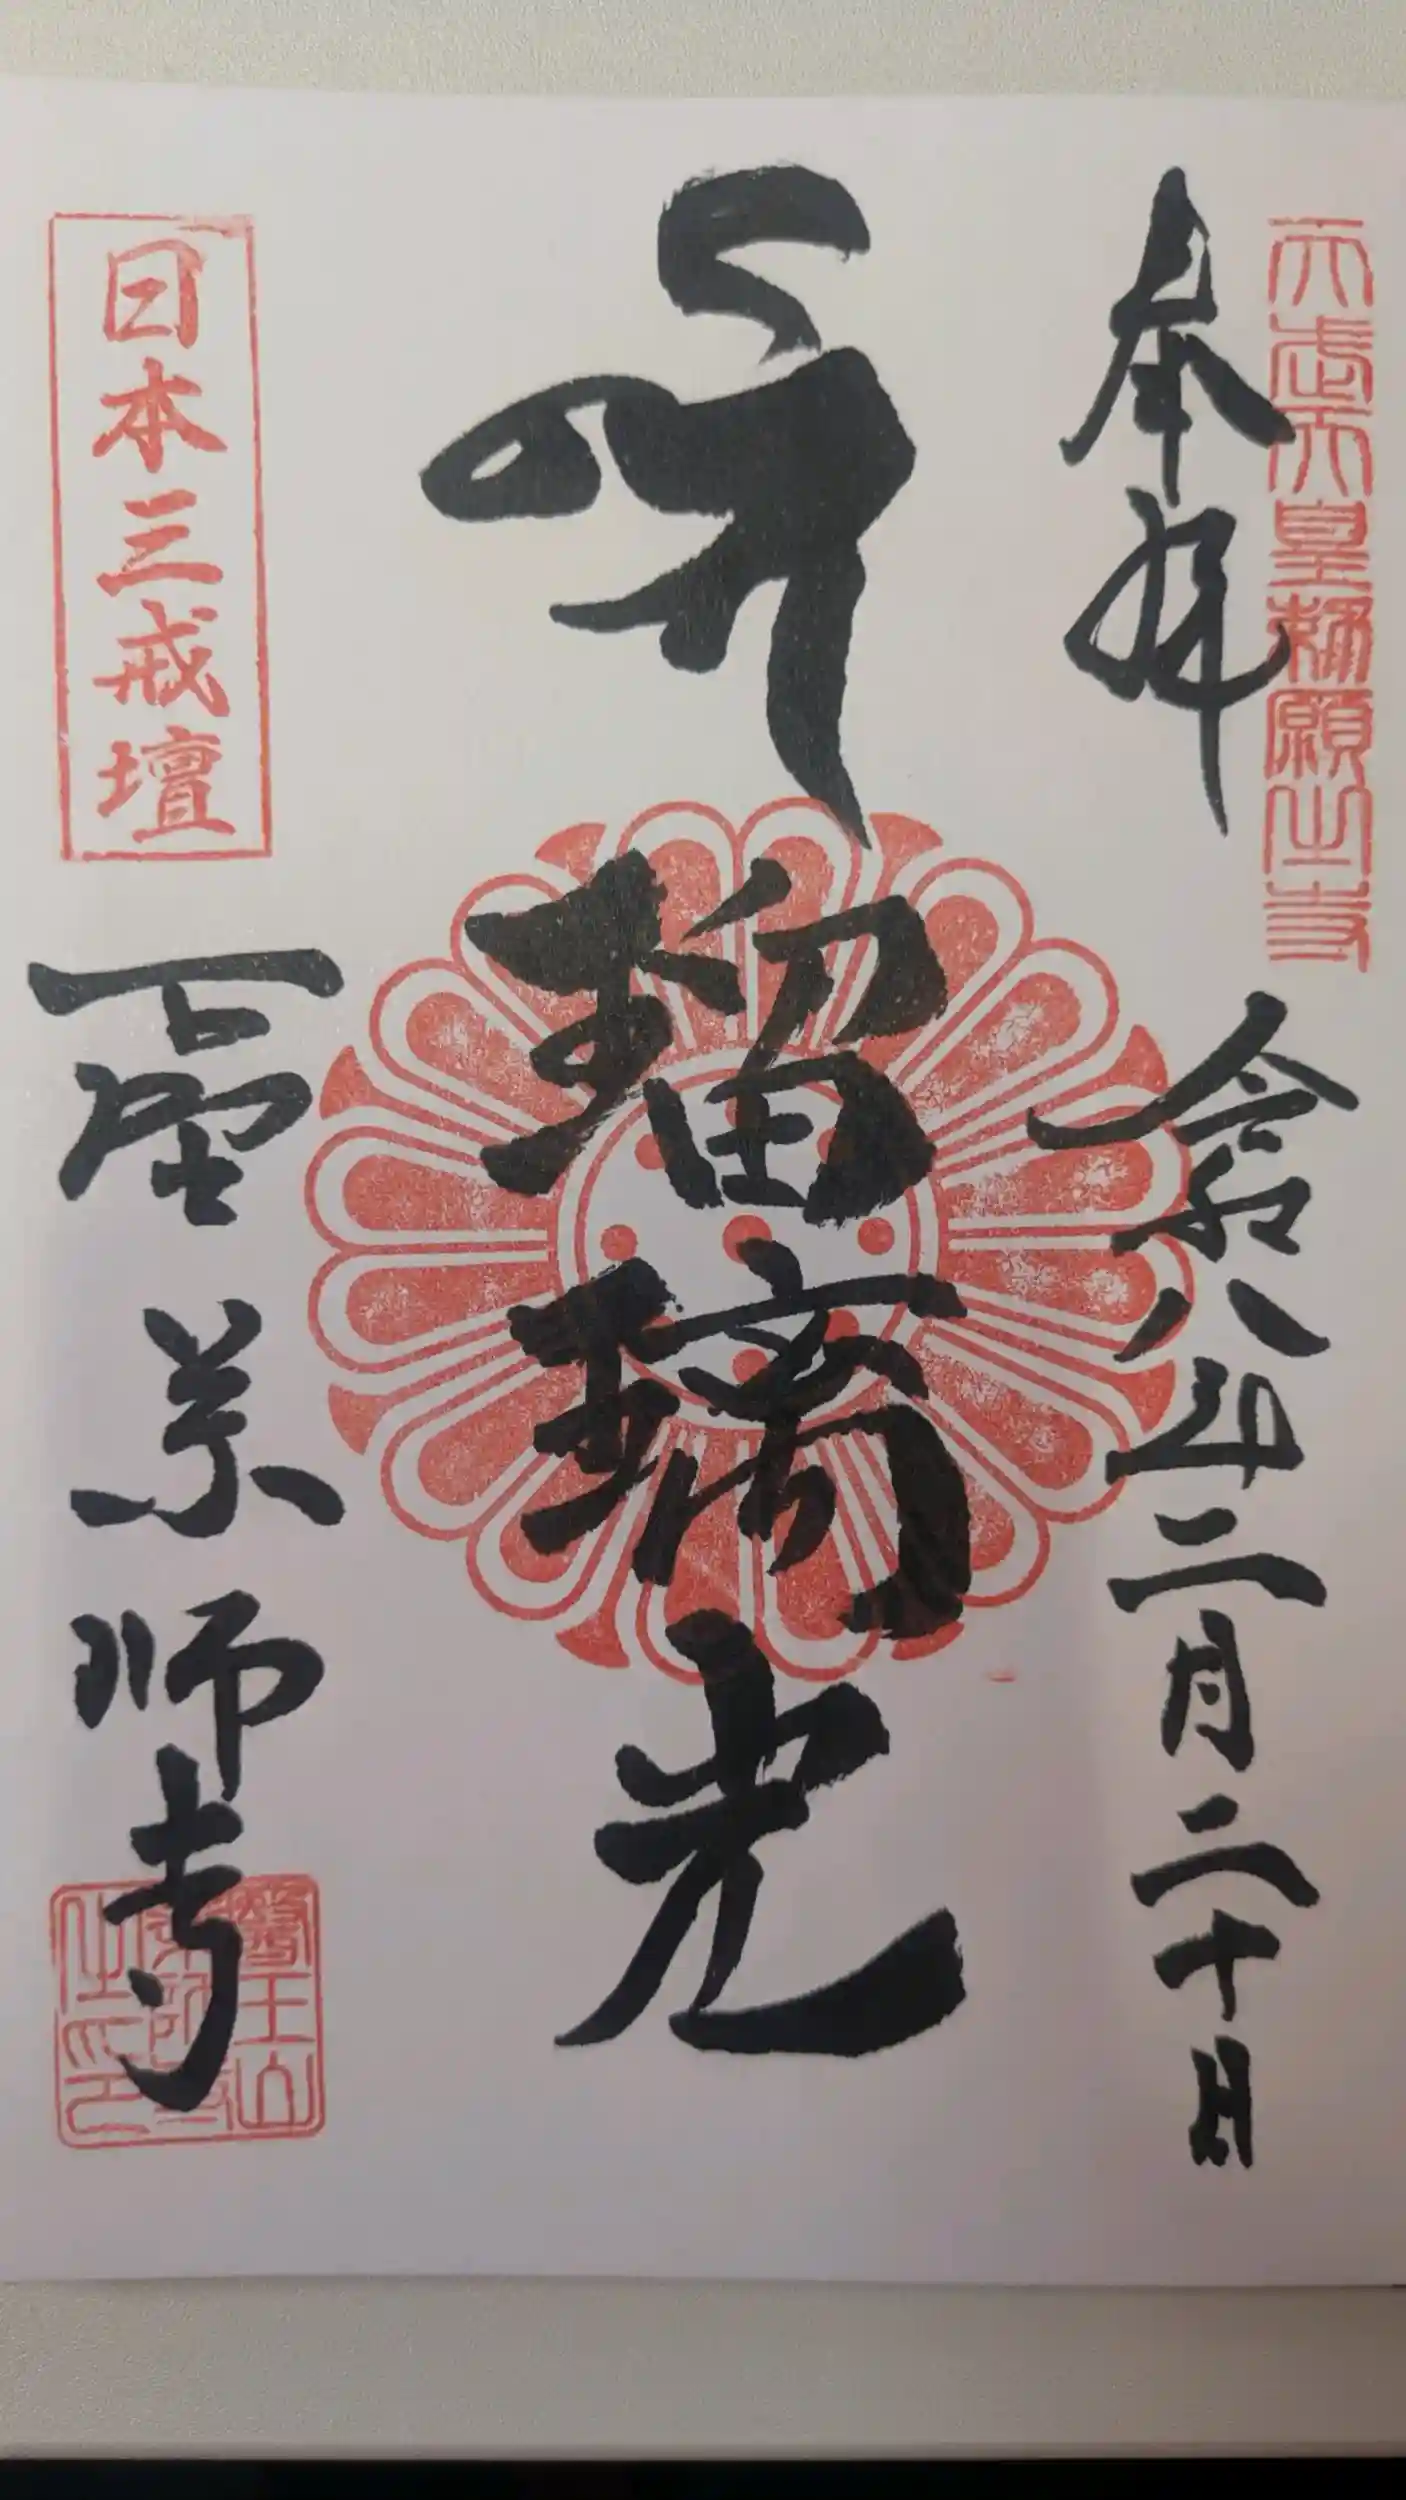 天武天皇勅願之寺
奉拝 令和八年二月二十日
瑠璃光
日本三戒壇
下野薬師寺
醫王山薬師寺之印